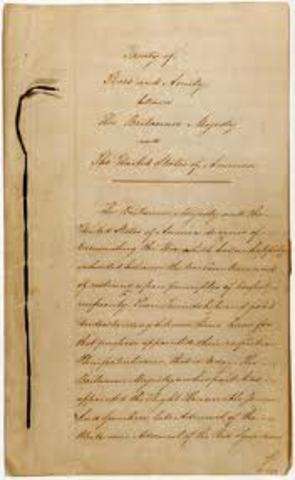 Treaty of
Peace and Amity
between
His Britannic Majesty
and
The United States of America
His Britannic Majesty and the
United States of America desirous of
terminating the War which has unhappily
subsisted between the two Countries, and
of restoring upon principles of perfect
reciprocity, Peace, Friendship, and good
Understanding between them, have for
that purpose appointed their respective
Plenipotentiaries, that is to say, His
Britannic Majesty on his part has
appointed the Right Honourable James
Lord Gambier, late Admiral of the
White now Admiral of the Red Squadron